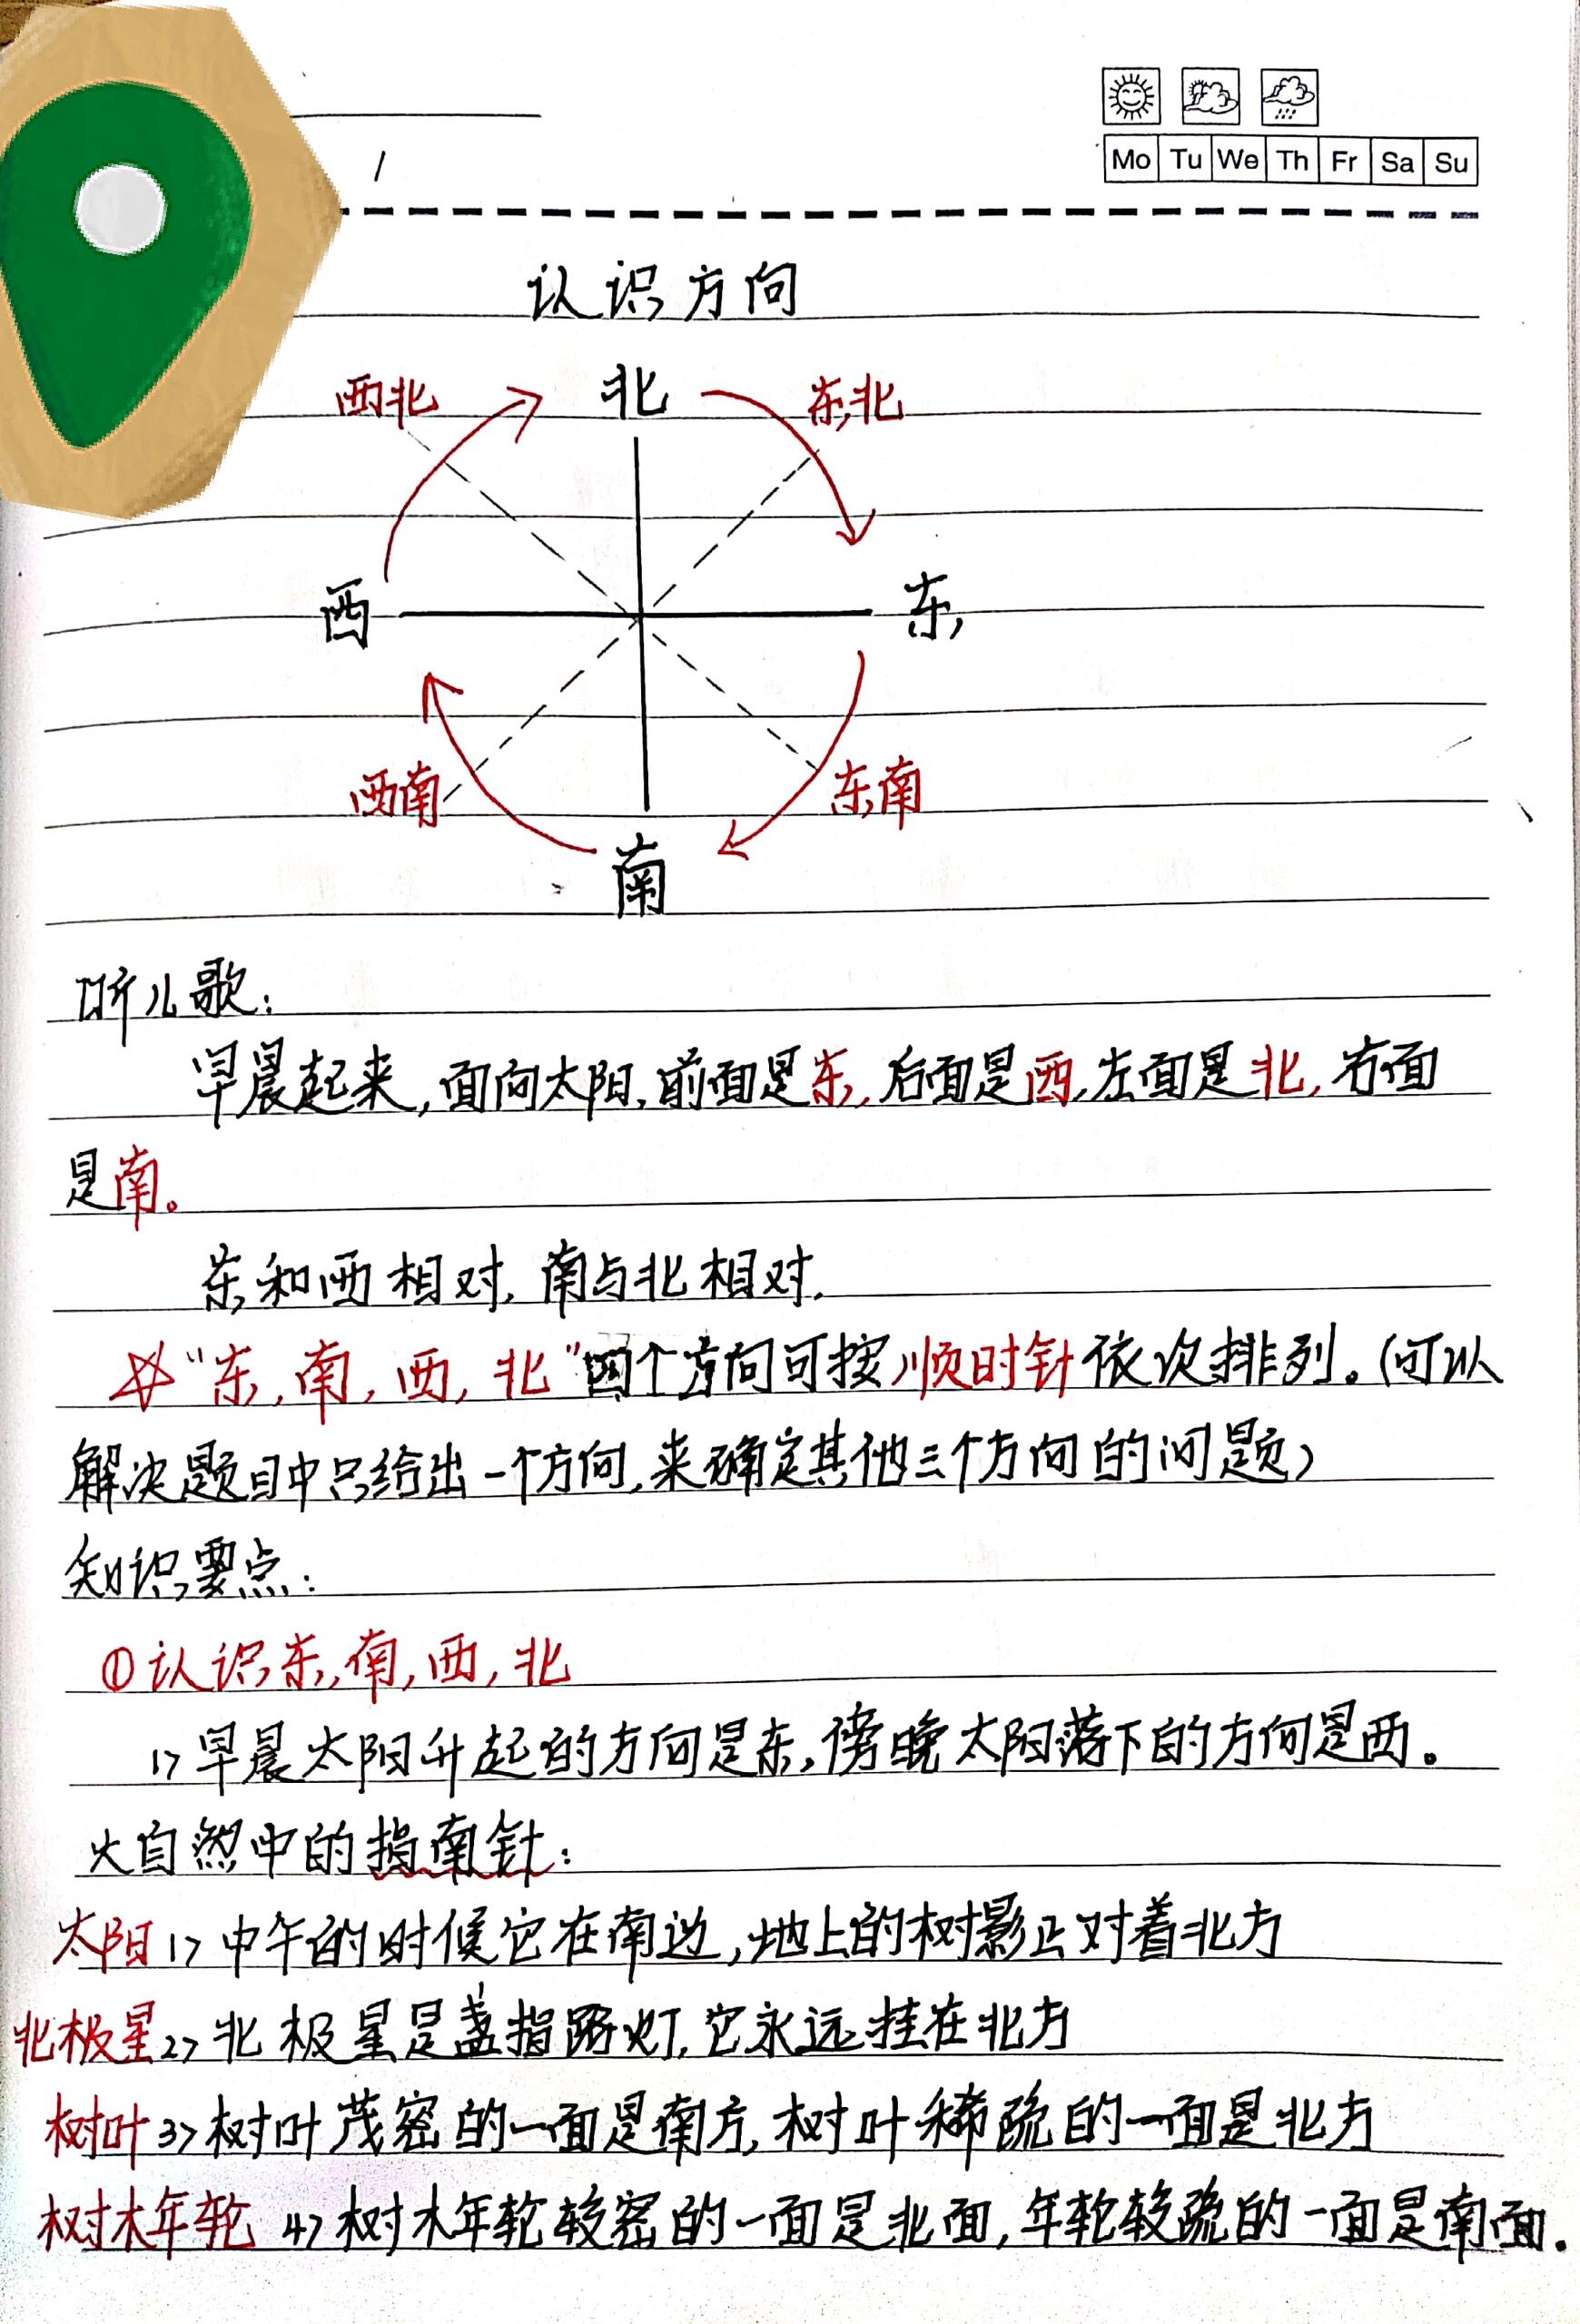 Mo Tu We Th Fr Sa Su
/
认识方向
西北 北 东北
西 东
西南 东南
南
听儿歌：
早晨起来，面向太阳，前面是东，后面是西，左面是北，右面
是南。
东和西相对，南与北相对．
☆“东，南，西，北”四个方向可按顺时针依次排列。（可以
解决题目中只给出一个方向，来确定其他三个方向的问题）
知识要点：
①认识东，南，西，北
1>早晨太阳升起的方向是东，傍晚太阳落下的方向是西。
大自然中的指南针：
太阳 1>中午的时候它在南边，地上的树影正对着北方
北极星 2>北极星是盏指路灯，它永远挂在北方
树叶 3>树叶茂密的一面是南方，树叶稀疏的一面是北方
树木年轮 4>树木年轮较密的一面是北面，年轮较疏的一面是南面．